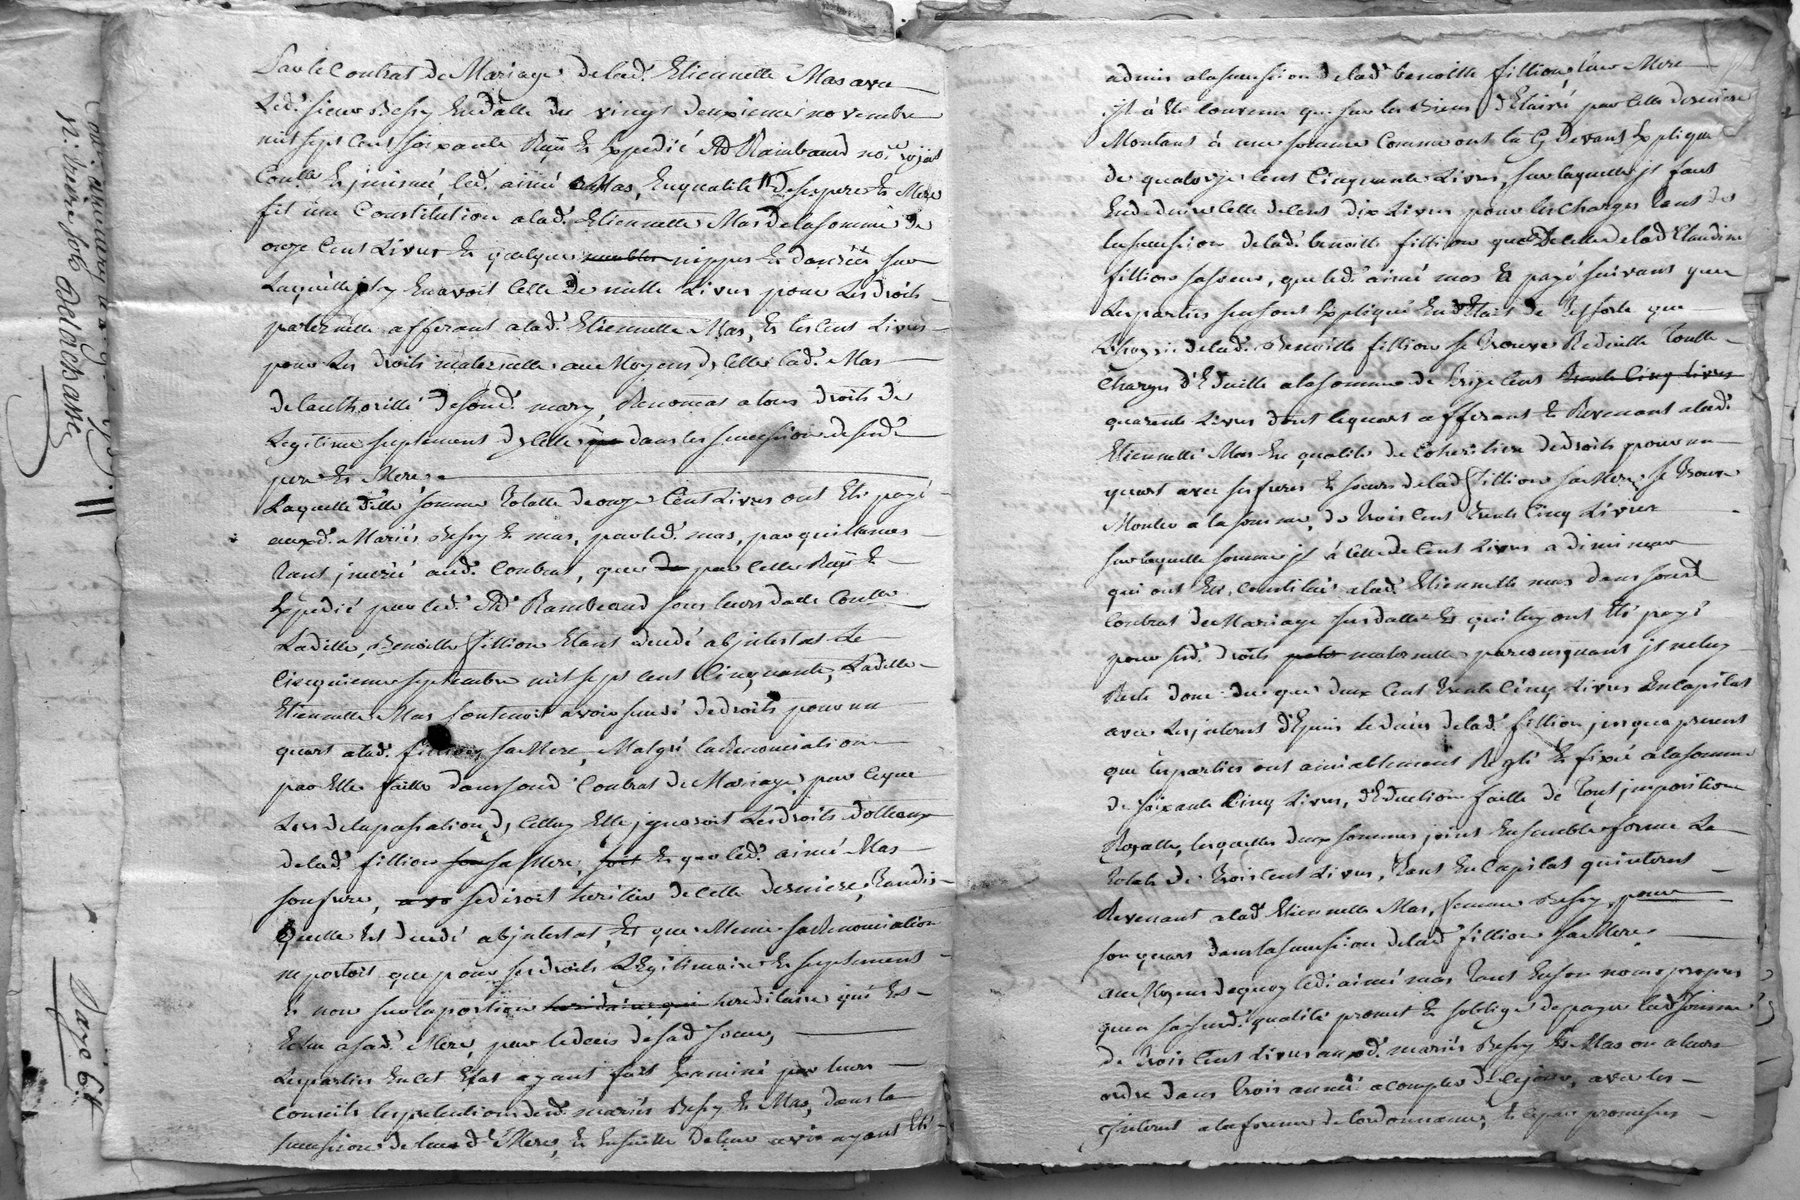 Par le Contrat de Mariage de lad. Etiennette Mas avec
Led. sieur Bessy En datte du vingt deuxieme novembre
mil sept cent soixante Reçu Et Expedié Me Raimbaud no.re royal
Con.lle Et jnsinué, led. aimé Mas, En qualité de ses pere Et Mere
fit une Constitution a lad. Etiennette Mas de la somme de
onze Cent Livres Et quelques nippes Et danrées sur
Laquelle jl y En avoit Celle de mille Livres pour Les droits
paternelle afferant a lad. Etiennette Mas, Et les Cent Livres
pour Les droits maternelle au Moyens d, Celles lad. Mas
de lauthorité de sond. mary, Renonças a tous droits de
Legitime suplement d, Celle dans les succession de sesd.
pere Et Mere.
Laquelle ditte somme totalle de onze Cent Livres ont Eté payé
auxd. Mariés Bessy Et mas, par led. mas, par quittances
tant jnseré aud. Contrat, que par Celle Reçu Et
Expedié par led. Me Rambaud sous leurs datte Con.lle
Laditte Benoitte fillion Etant decedé abjntestat Le
Cinquieme septembre mil sept cent Cinquante, Laditte
Etiennette Mas soutenoit avoir succedé de droits pour un
quart a lad. fillion sa Mere, Malgré la Renonciation
par Elle faitte dans sond. Contrat de Mariage, par ce que
Lors de la passation d, Celluy Elle jgnoroit Les droits dotteaux
de lad. fillion sa Mere, Et que led. aimé Mas
son frere, se disoit heritier de Cette derniere, tandis
quelle Est decedé abjntestat, Et que Meme sa Renonciation
ne portoit que pour ses droits Legitimaire Et suplement
Et non sur la portion hereditaire qui Est
Echu a sad. Mere, par le deces de sad. soeur,
Les parties En cet Etat ayant fait Examiné par leurs
Conseils les pretentions desd. mariés Bessy Et Mas, dans la
succession de leurd. Mere, Et Ensuitte de leur avis ayant Eté
admis a la succession de lad. benoitte fillion leur Mere
jl à Eté Convenu que sur les Biens delaissé par Cette derniere
Montant à une somme Comme ont la Cy devant Expliqué
de quatorze Cent Cinquante Livres, sur laquelle jl faut
En deduire Celle de Cent dix Livres pour les Charges tant de
la succession de lad. benoitte fillion que de Celle de lad. Claudine
fillion sa soeur, que led. aimé mas à payé suivant que
Les parties sen sont Expliqué En detait de Ressorte que
L'hoyrie de lad. Benoitte fillion se trouve Reduitte toutte
Charges deduitte a la somme de treize Cent
quarente Livres dont le quart afferant Et Revenant a lad.
Etiennette Mas En qualité de Coheritiere de droits pour un
quart avec ses freres Et soeurs de lad. fillion sa Mere, se trouve
Monter a la somme, de trois Cent trente Cinq Livres
sur laquelle somme jl à Celle de Cent Livres a diminuer
qui ont Eté Constitué a lad. Etiennette mas dans sond.
Contrat de Mariage susdatté Et qui luy ont Eté payé
pour sesd. droits maternelle, par consequant jl ne luy
Reste donc du que deux Cent trente Cinq Livres En Capital
avec Les jnterest depuis le deces de lad. fillion jusqua present
que les parties ont aimablement Reglé Et fixé a la somme
de soixante Cinq Livres, deduction faitte de tout jmposition
Royalle, lesquelles deux sommes joint Ensemble forme Le
totale de trois Cent Livres, tant En Capital qu'interest
Revenant a lad. Etiennette Mas, femme Bessy, pour
son quart dans la succession de lad. fillion sa Mere.
au Moyens de quoy led. aimé mas tant En son nom propre
quen sa susd. qualité promet Et soblige de payer lad. somme
de trois Cent Livres auxd. mariés Bessy Et Mas ou a leurs
ordre dans trois année a compter de Cejour, avec les
jnterest a la forme de lordonnance, Et Cepar promesses
Payé 6tt